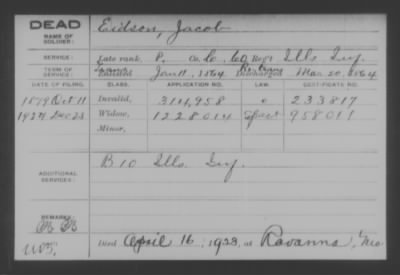 DEAD
NAME OF SOLDIER: Eidson, Jacob
SERVICE: Late rank, P. Co. G, 60 Reg't Ills. Inf.
TERM OF SERVICE: Trans Enlisted Jan 11, 1864 Re-trans Discharged Mar. 20, 1864
DATE OF FILING. CLASS. APPLICATION NO. LAW. CERTIFICATE NO.
1879 Oct 11 Invalid, 314,958 233817
1927 Dec 23 Widow, 1228014 958011
Minor,
ADDITIONAL SERVICES: B 10 Ills. Inf.
REMARKS:
Died April 16, 1923, at Ravanna, Mo